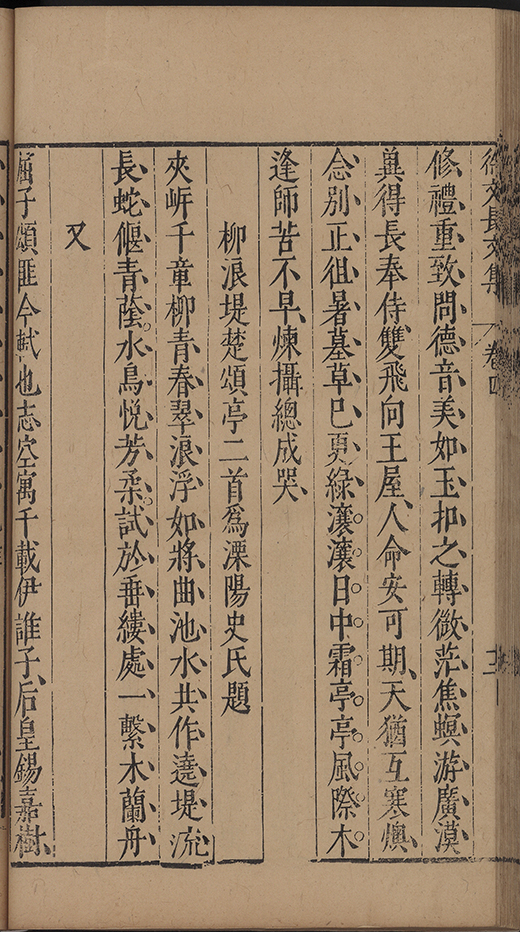 徐文長文集 卷四 三
修禮重致問德音美如玉扣之轉微茫焦螟游廣漠
冀得長奉侍雙飛向王屋人命安可期天猶互寒燠
念別正徂暑墓草已更綠瀼瀼日中霜亭亭風際木
逢師苦不早煉攝總成哭
柳浪堤楚頌亭二首爲溧陽史氏題
夾㟁千章柳青春翠浪浮如將曲池水共作遶堤流
長蛇偃青蔭水鳥悅芳柔試於垂縷處一繫木蘭舟
又
屈子頌匪今軾也志空寓千載伊誰子后皇錫嘉樹